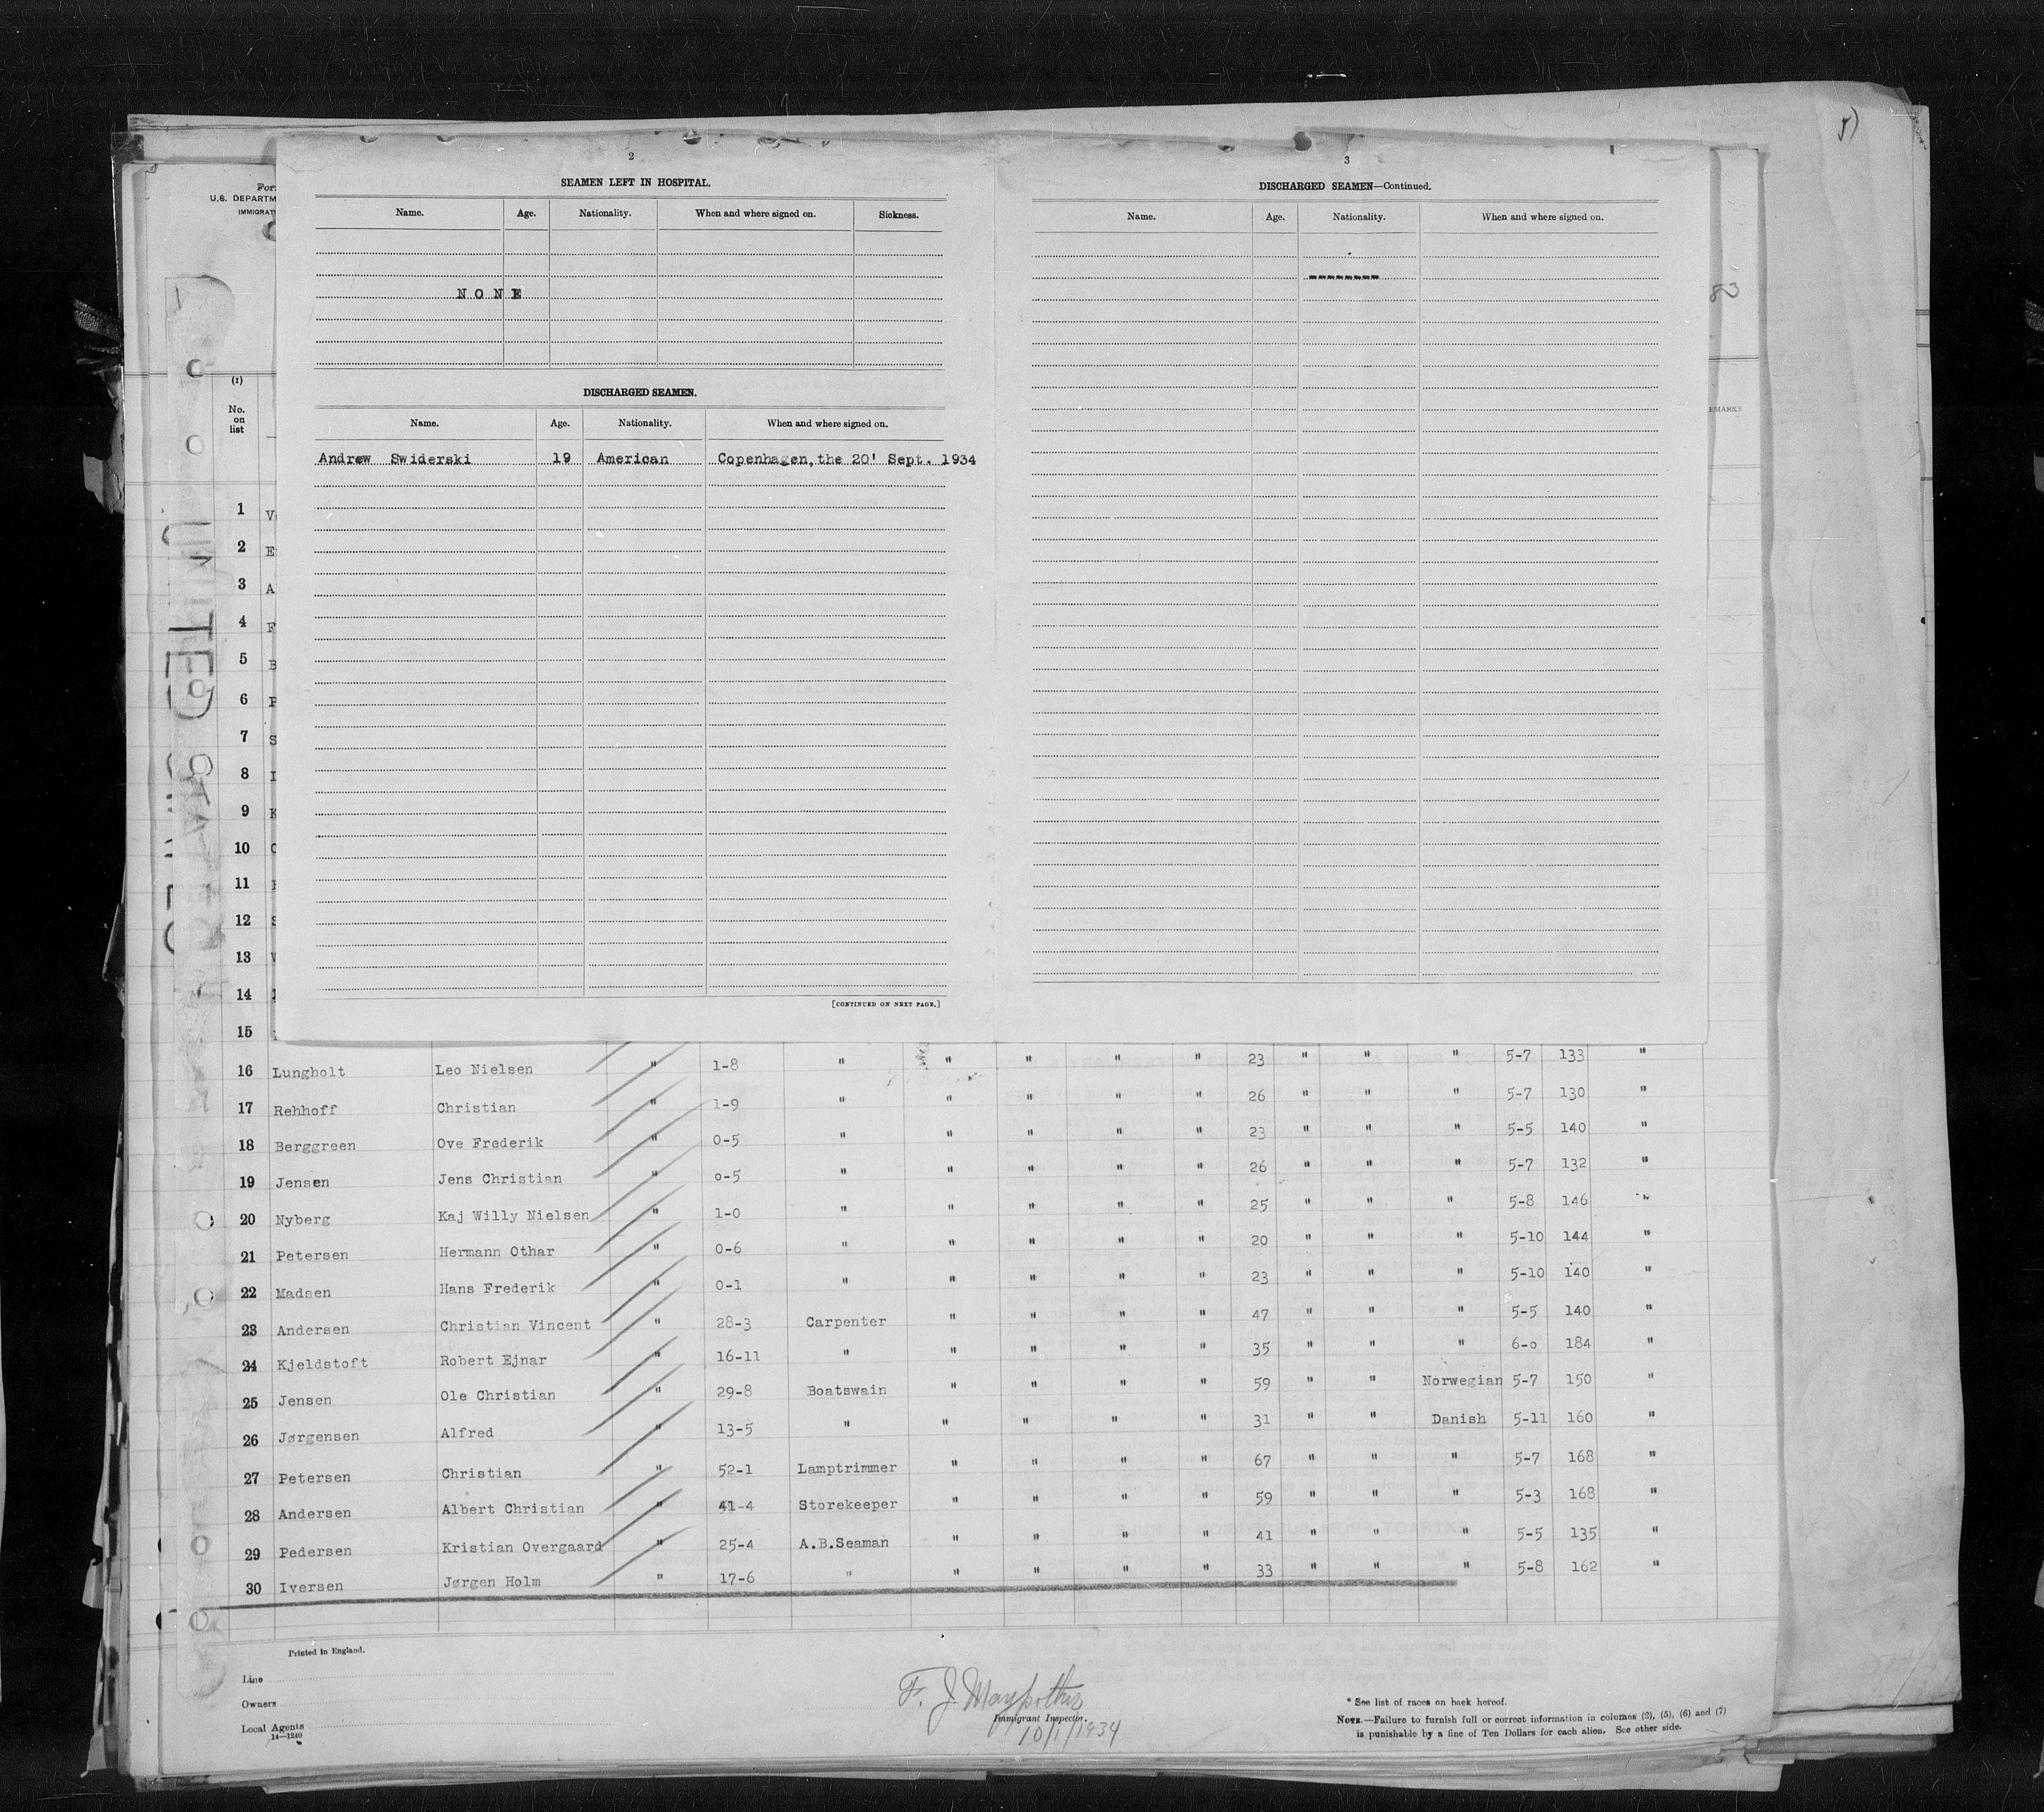 2
SEAMEN LEFT IN HOSPITAL.
Name. Age. Nationality. When and where signed on. Sickness.
NONE
DISCHARGED SEAMEN.
Name. Age. Nationality. When and where signed on.
Andrew Swiderski 19 American Copenhagen, the 20' Sept. 1934
[CONTINUED ON NEXT PAGE.]
3
DISCHARGED SEAMEN—Continued.
Name. Age. Nationality. When and where signed on.
--------
5)
83
EMARKS
U.S. DEPARTM
IMMIGRAT
UNITED
(1)
No. on list
1
2 E
3 A
4 F
5 B
6
7 S
8 I
9 K
10
11
12 S
13
14
15
16 Lungholt Leo Nielsen " 1-8 " " " " " 23 " " " 5-7 133 "
17 Rehhoff Christian " 1-9 " " " " " 26 " " " 5-7 130 "
18 Berggreen Ove Frederik " 0-5 " " " " " 23 " " " 5-5 140 "
19 Jensen Jens Christian " 0-5 " " " " " 26 " " " 5-7 132 "
20 Nyberg Kaj Willy Nielsen " 1-0 " " " " " 25 " " " 5-8 146 "
21 Petersen Hermann Othar " 0-6 " " " " " 20 " " " 5-10 144 "
22 Madsen Hans Frederik " 0-1 " " " " " 23 " " " 5-10 140 "
23 Andersen Christian Vincent " 28-3 Carpenter " " " " 47 " " " 5-5 140 "
24 Kjeldstoft Robert Ejnar " 16-11 " " " " " 35 " " " 6-0 184 "
25 Jensen Ole Christian " 29-8 Boatswain " " " " 59 " " Norwegian 5-7 150 "
26 Jørgensen Alfred " 13-5 " " " " " 31 " " Danish 5-11 160 "
27 Petersen Christian " 52-1 Lamptrimmer " " " " 67 " " " 5-7 168 "
28 Andersen Albert Christian " 41-4 Storekeeper " " " " 59 " " " 5-3 168 "
29 Pedersen Kristian Overgaard " 25-4 A.B.Seaman " " " " 41 " " " 5-5 135 "
30 Iversen Jørgen Holm " 17-6 " " " " " 33 " " " 5-8 162 "
Printed in England.
Line
Owners
Local Agents
14—1240
F. J.
Immigrant Inspector.
10/1/1934
* See list of races on back hereof.
NOTE.—Failure to furnish full or correct information in columns (2), (5), (6) and (7)
is punishable by a fine of Ten Dollars for each alien. See other side.